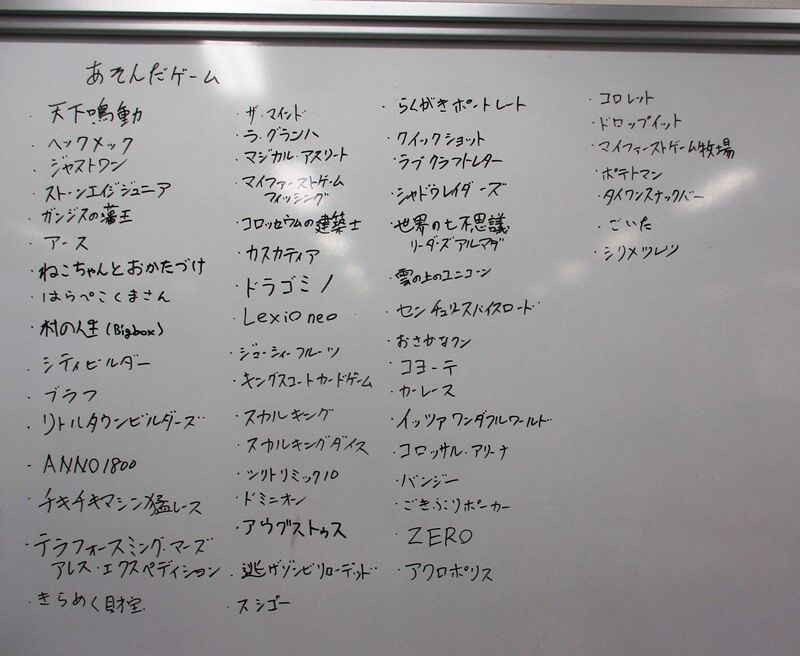 あそんだゲーム
・天下鳴動
・ヘックメック
・ジャストワン
・ストーンエイジジュニア
・ガンジスの藩王
・アース
・ねこちゃんとおかたづけ
・はらぺこくまさん
・村の人生(Bigbox)
・シティビルダー
・ブラフ
・リトルタウンビルダーズ
・ANNO1800
・チキチキマシン猛レース
・テラフォーミング・マーズ
アレス・エクスペディション
・きらめく財宝
・ザ・マインド
・ラ・グランハ
・マジカル・アスリート
・マイファーストゲーム
フィッシング
・コロッセウムの建築士
・カスカディア
・ドラゴミノ
・Lexio neo
・ジューシィーフルーツ
・キングスコートカードゲーム
・スカルキング
・スカルキングダイス
・ツリトリミック10
・ドミニオン
・アウグストゥス
・逃げゾンビリローデッド
・スシゴー
・らくがきポートレート
・クイックショット
・ラブクラフトレター
・シャドウレイダーズ
・世界の七不思議
リーダーズアルマダ
・雲の上のユニコーン
・センチュリースパイスロード
・おさかなクン
・コヨーテ
・カーレース
・イッツアワンダフルワールド
・コロッサル・アリーナ
・バンジー
・ごきぶりポーカー
・ZERO
・アクロポリス
・コロレット
・ドロップイット
・マイファーストゲーム牧場
・ポテトマン
・タイワンスナックバー
・ごいた
・シリメツレツ